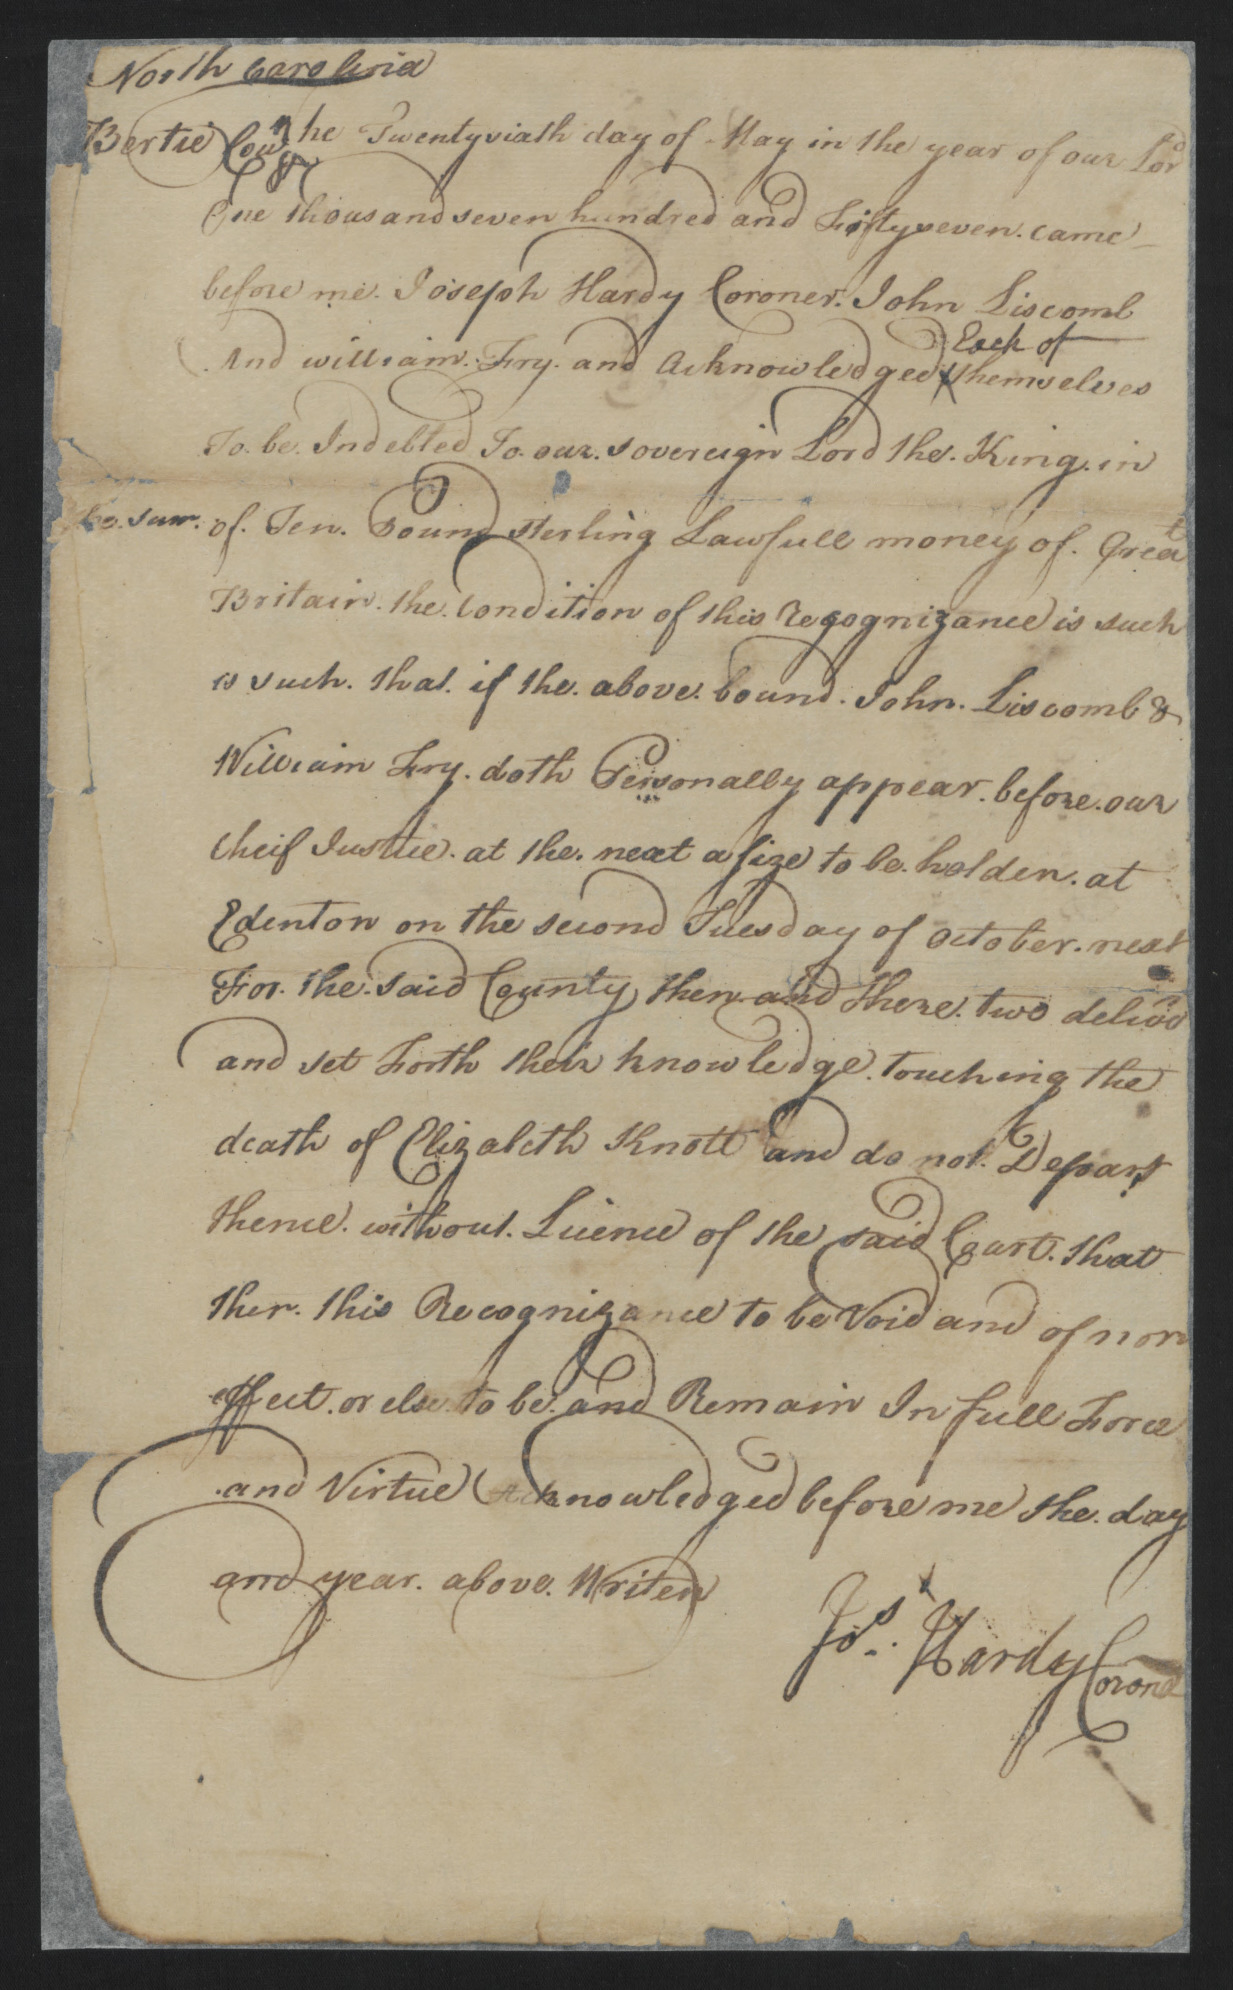 North Carolina
Bertie County the Twentysixth day of May in the year of our Lord
One thousand seven hundred and Fiftyseven. came
before me. Joseph Hardy Coroner. John Liscomb
Each of
And william. Fry. and Acknowledged themselves
To. be. Indebted To. our. sovereign Lord the. King. in
the. sum. of. Ten. Pound sterling Lawfull money of. Great
Britain. the. Condition of this Recognizance is such
is such. that. if the. above. bound. John. Liscomb &
William Fry. doth Personally appear. before. our
Cheif Justice. at the. next assize to be. holden. at
Edenton on the second Tuesday of October. next
For. the. said County then and there. two deliver
and set Forth their knowledge. touching the
death of Elizabeth Knott and do not. Depart
thence. without. Licence of the said Court. that
then. this Recognizance to be Void and of non
effect. or else. to be. and Remain In full Force
and Virtue Acknowledged before me the. day
and year. above. Writen
Jos. Hardy Coroner